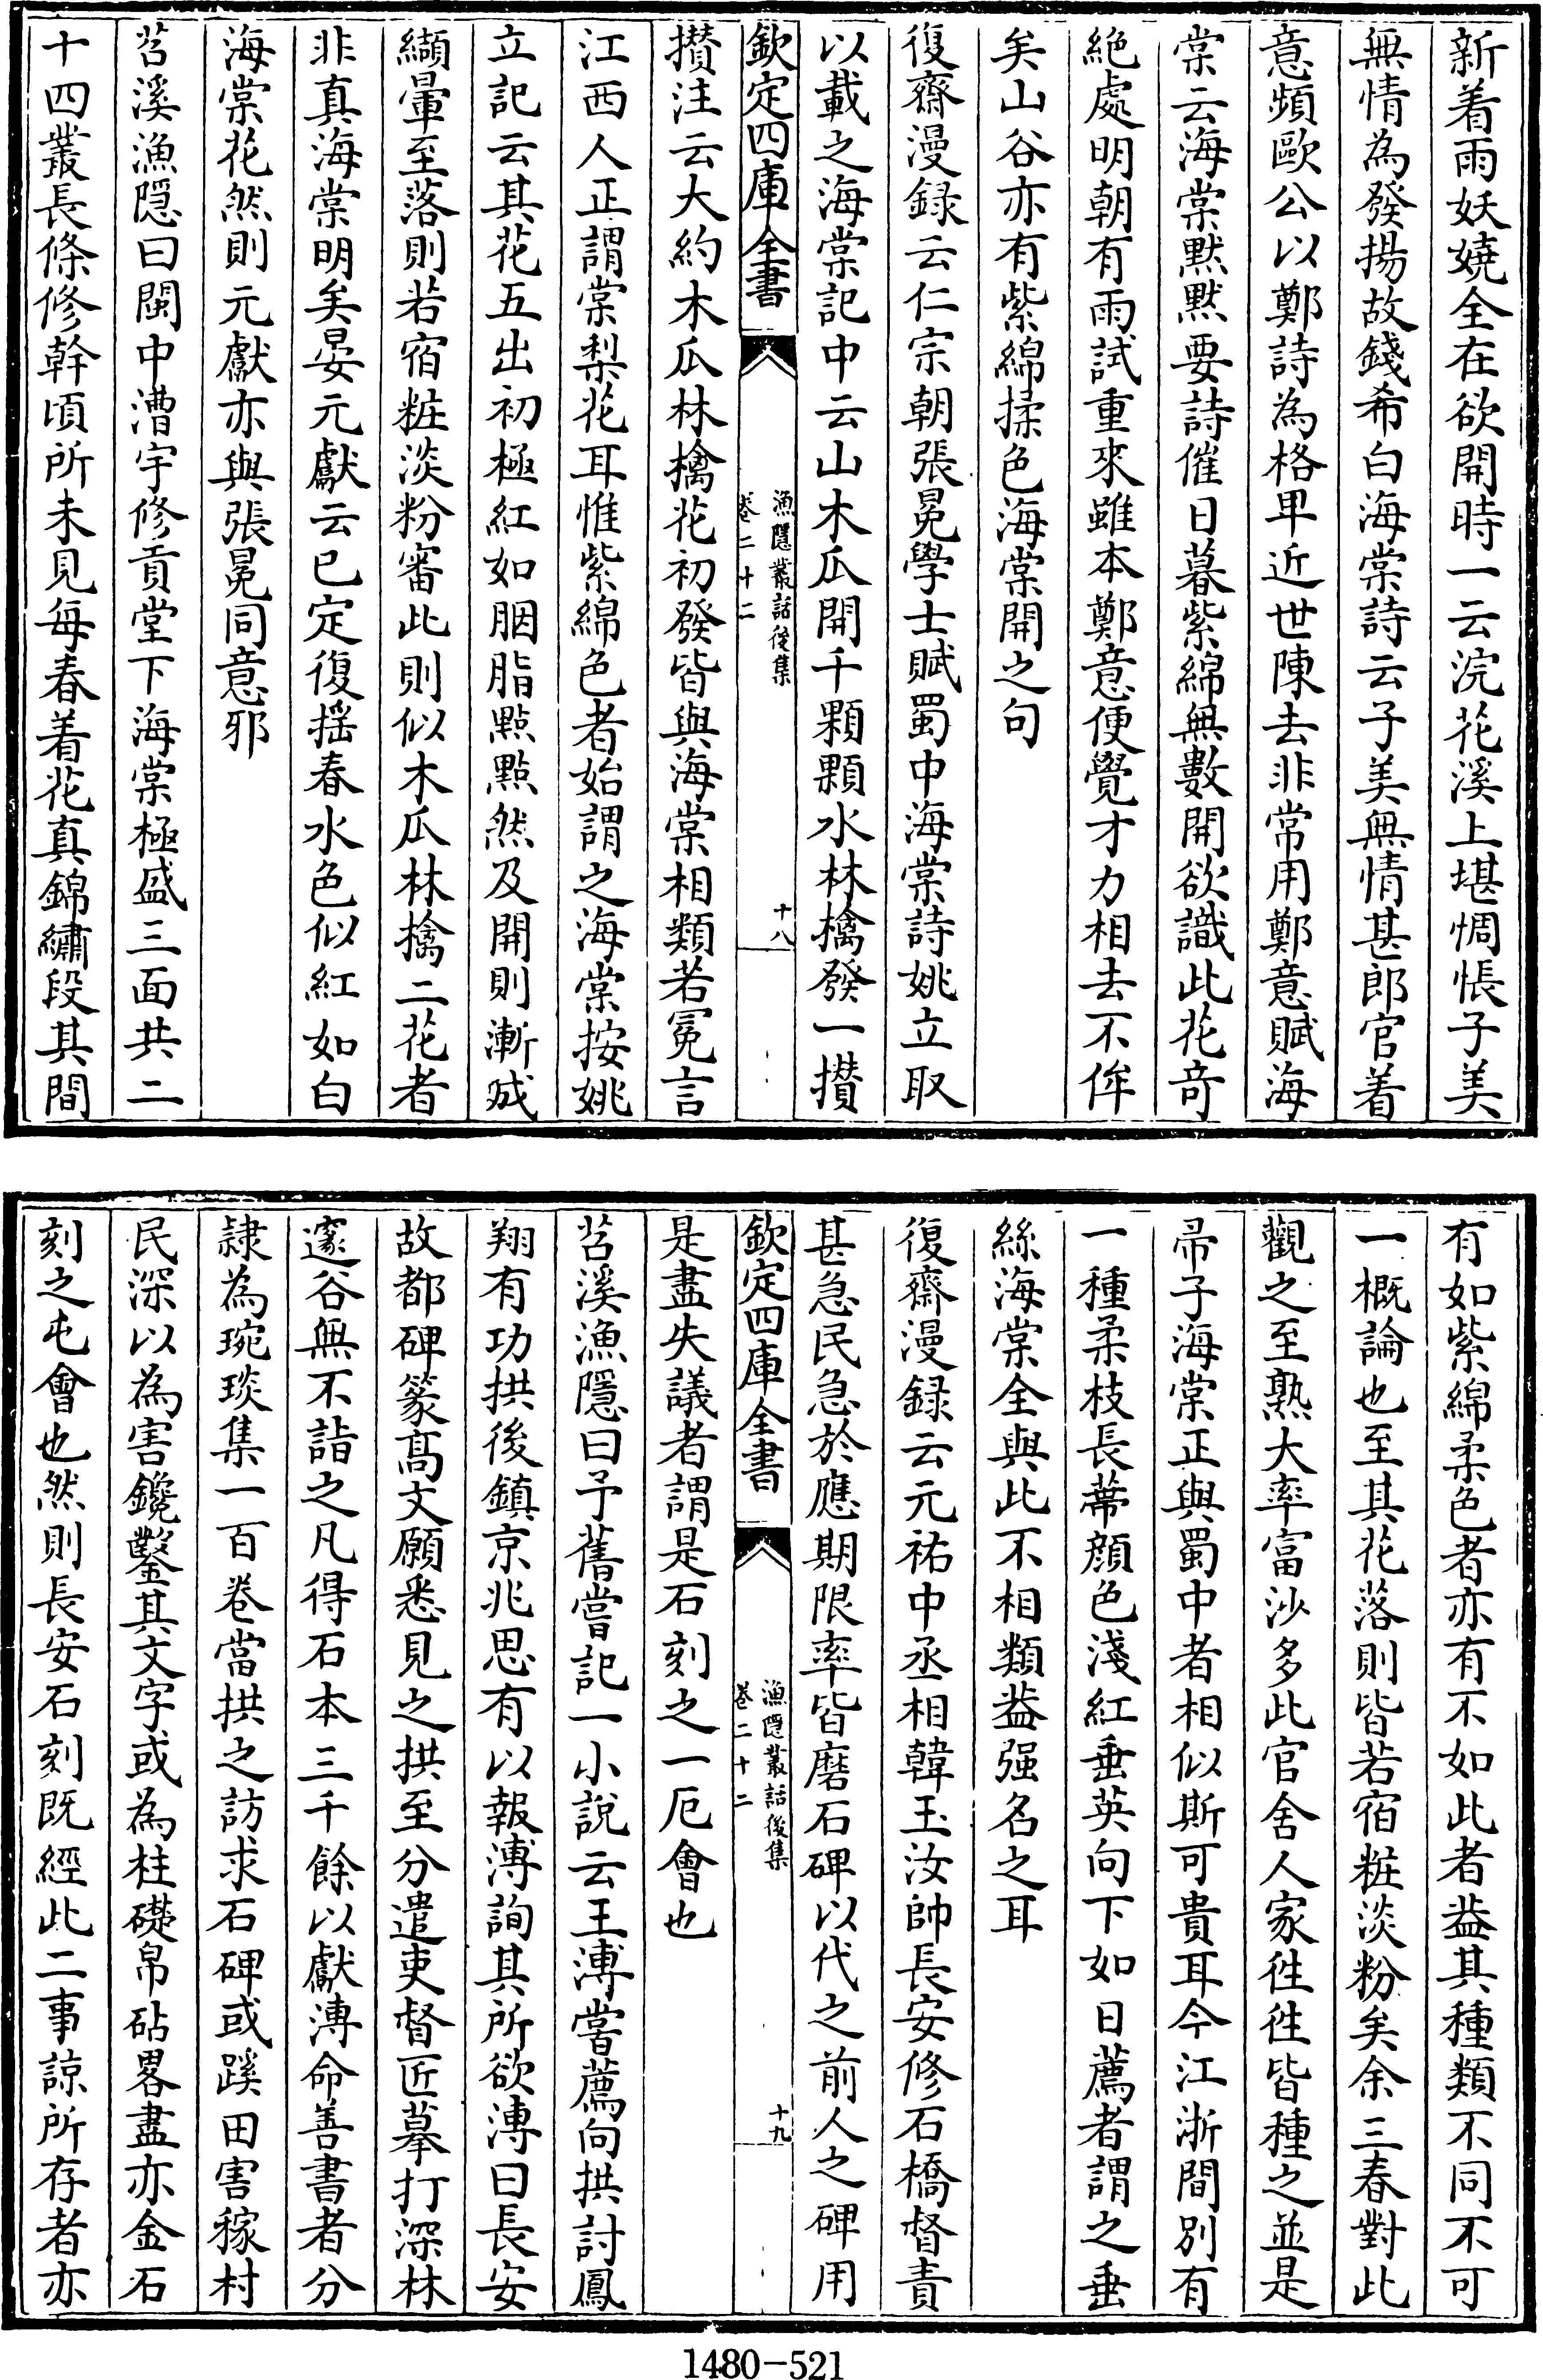 新着雨妖嬈全在欲開時一云浣花溪上堪惆悵子美
無情為發揚故錢希白海棠詩云子美無情甚郎官着
意頻歐公以鄭詩為格卑近世陳去非常用鄭意賦海
棠云海棠默默要詩催日暮紫綿無數開欲識此花奇
絶處明朝有雨試重來雖本鄭意便覺才力相去不侔
矣山谷亦有紫綿揉色海棠開之句
復齋漫録云仁宗朝張冕學士賦蜀中海棠詩姚立取
以載之海棠記中云山木瓜開千顆顆水林擒發一攅
欽定四庫全書
漁隱叢話後集
卷二十二
十八
攅注云大約木瓜林擒花初發皆與海棠相類若冕言
江西人正謂棠梨花耳惟紫綿色者始謂之海棠按姚
立記云其花五出初極紅如胭脂點點然及開則漸成
纈暈至落則若宿粧淡粉審此則似木瓜林擒二花者
非真海棠明矣晏元獻云已定復揺春水色似紅如白
海棠花然則元獻亦與張冕同意邪
苕溪漁隠曰閩中漕宇修貢堂下海棠極盛三面共二
十四叢長條修幹頃所未見每春着花真錦繡段其間
有如紫綿柔色者亦有不如此者葢其種類不同不可
一概論也至其花落則皆若宿粧淡粉矣余三春對此
觀之至熟大率富沙多此官舍人家徃徃皆種之並是
帚子海棠正與蜀中者相似斯可貴耳今江浙間别有
一種柔枝長蔕顔色淺紅垂英向下如日蔫者謂之垂
絲海棠全與此不相類葢强名之耳
復齋漫録云元祐中丞相韓玉汝帥長安修石橋督責
甚急民急於應期限率皆磨石碑以代之前人之碑用
欽定四庫全書
漁隱叢話後集
卷二十二
十九
是盡失議者謂是石刻之一厄會也
苕溪漁隱曰予舊嘗記一小說云王溥嘗薦向拱討鳳
翔有功拱後鎮京兆思有以報溥詢其所欲溥曰長安
故都碑篆髙文願悉見之拱至分遣吏督匠摹打深林
邃谷無不詣之凡得石本三千餘以獻溥命善書者分
隸為琬琰集一百卷當拱之訪求石碑或蹊田害稼村
民深以為害鑱鑿其文字或為柱礎帛砧畧盡亦金石
刻之屯會也然則長安石刻既經此二事諒所存者亦
1480-521